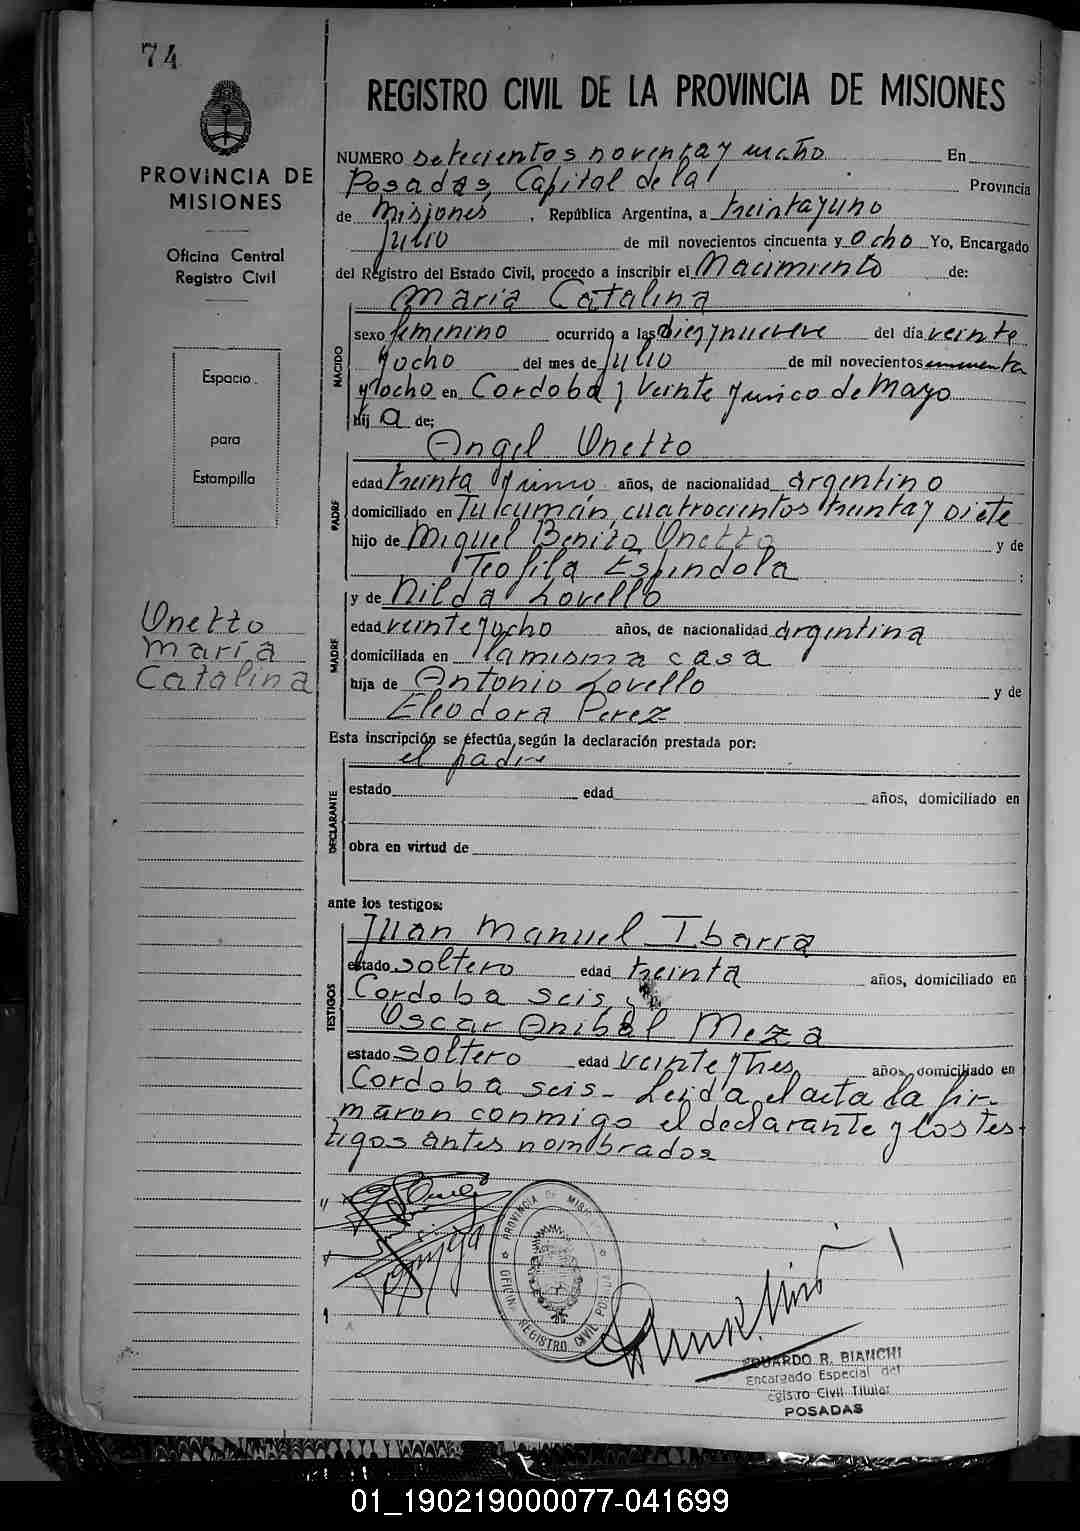 74
PROVINCIA DE
MISIONES
Oficina Central
Registro Civil
Espacio
para
Estampilla
Unetto
María
Catalina
REGISTRO CIVIL DE LA PROVINCIA DE MISIONES
NUMERO setecientos noventa y cuatro En
Posadas, Capital de la Provincia
de Misiones, República Argentina, a treinta y uno
Julio de mil novecientos cincuenta y ocho Yo, Encargado
del Registro del Estado Civil, procedo a inscribir el Nacimiento de:
María Catalina
NACIDO
sexo femenino ocurrido a las diez y nueve del día veinte
y ocho del mes de Julio de mil novecientos cincuenta
y ocho en Cordoba y Veinte y cinco de Mayo
hij a de:
Angel Unetto
PADRE
edad treinta y años, de nacionalidad argentino
domiciliado en Tucumán, cuatrocientos treinta y siete
hijo de Miguel Benito Unetto y de
Teofila Espindola
y de Nilda Lovello
MADRE
edad veinte y ocho años, de nacionalidad argentina
domiciliada en la misma casa
hija de Antonio Lovello y de
Eleodora Perez
Esta inscripción se efectúa según la declaración prestada por:
el padre
DECLARANTE
estado edad años, domiciliado en
obra en virtud de
ante los testigos:
TESTIGOS
Juan Manuel Ibarra
estado soltero edad treinta años, domiciliado en
Cordoba seis y
Oscar Anibal Meza
estado soltero edad veinte y tres años, domiciliado en
Cordoba seis- Leida el acta la fir-
maron conmigo el declarante y los tes-
tigos antes nombrados
PROVINCIA DE MISIONES
OFICINA REGISTRO CIVIL POSADAS
EDUARDO R. BIANCHI
Encargado Especial del
Registro Civil Titular
POSADAS
01_190219000077-041699